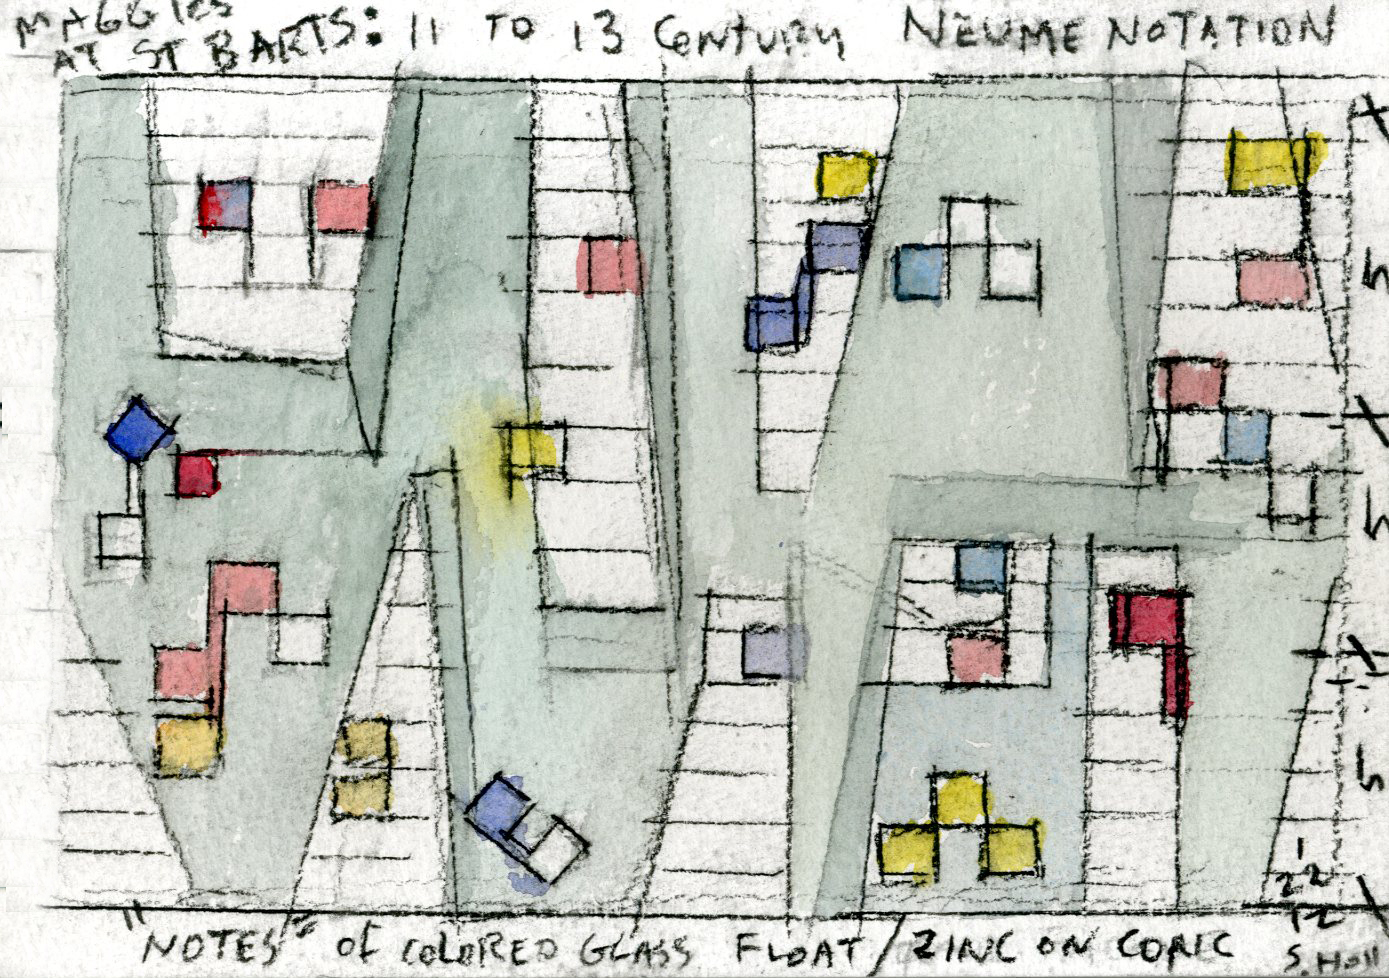 MAGGIES
AT ST BARTS: 11 TO 13 CENTURY NEUME NOTATION
"NOTES" OF COLORED GLASS FLOAT / ZINC ON CONC
S Holl